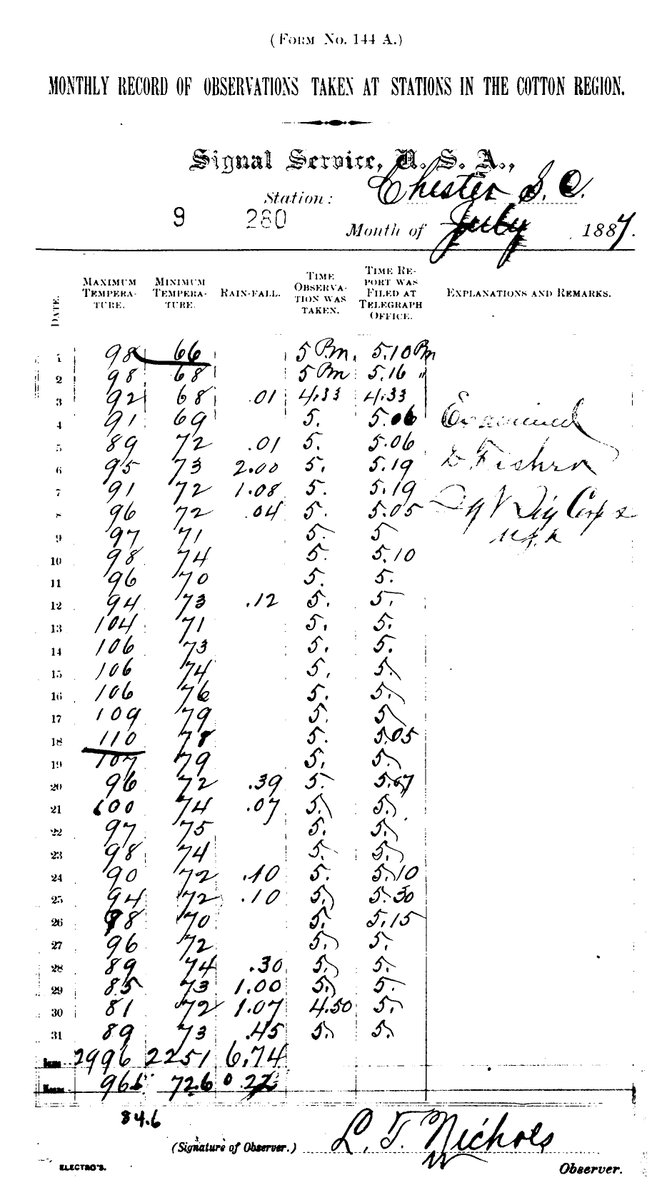 (FORM NO. 144 A.)
MONTHLY RECORD OF OBSERVATIONS TAKEN AT STATIONS IN THE COTTON REGION.
Signal Service, U. S. A.,
Station: Chester S. C.
9 280 Month of July, 1887.
DATE. MAXIMUM TEMPERA-TURE. MINIMUM TEMPERA-TURE. RAIN-FALL. TIME OBSERVA-TION WAS TAKEN. TIME RE-PORT WAS FILED AT TELEGRAPH OFFICE. EXPLANATIONS AND REMARKS.
1 98 66 5 P.m. 5.10 Pm
2 98 68 5 Pm 5.16 "
3 92 68 .01 4.33 4.33
4 91 69 5. 5.06 Examined
5 89 72 .01 5. 5.06
6 95 73 2.00 5. 5.19
7 91 72 1.08 5. 5.19
8 96 72 .04 5. 5.05 Sig Corps
9 97 71 5. 5
10 98 74 5. 5.10
11 96 70 5. 5.
12 94 73 .12 5. 5.
13 104 71 5. 5.
14 106 73 5. 5.
15 106 74 5. 5.
16 106 76 5. 5.
17 109 79 5. 5
18 110 78 5. 5.05
19 107 79 5. 5.
20 96 72 .39 5. 5.07
21 100 74 .07 5. 5.
22 97 75 5. 5.
23 98 74 5. 5.
24 90 72 .10 5. 5.10
25 94 72 .10 5. 5.30
26 98 70 5. 5.15
27 96 72 5. 5.
28 89 74 .30 5. 5.
29 85 73 1.00 5. 5.
30 81 72 1.07 4.50 5.
31 89 73 .45 5. 5.
Sums 2996 2251 6.74
Means 96.6 72.6 0.22
84.6
(Signature of Observer.) L. T. Nichols
ELECTRO'S. Observer.